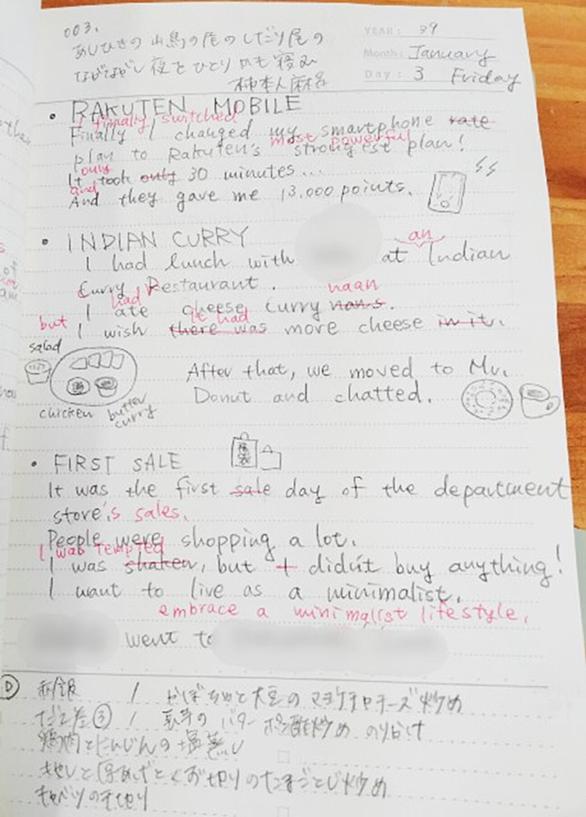 003.
あしひきの 山鳥の尾の しだり尾の
ながながし 夜をひとりかも寝む
柿本人麻呂
YEAR: 29
Month: January
Day: 3 Friday
• RAKUTEN MOBILE
I finally switched
Finally I changed my smartphone rate
most powerful
plan to Rakuten's strongest plan!
only
It took only 30 minutes...
and
And they gave me 13.000 points.
• INDIAN CURRY
an
I had lunch with at Indian
Curry Restaurant.
had naan
I ate cheese curry nan's.
but it had
I wish there was more cheese in it.
salad
chicken butter
curry
After that, we moved to Mr.
Donut and chatted.
• FIRST SALE
It was the first sale day of the department
store's sales.
People were shopping a lot.
I was tempted
I was shaken, but I didn't buy anything!
I want to live as a minimalist.
embrace a minimalist lifestyle.
went to
D 赤飯 / かぼちゃと大豆のマヨケチャチーズ炒め
/ のバターポン酢炒め のりかけ
鶏肉とにんじんの塩蒸し
たまごとじ炒め
キャベツの千切り